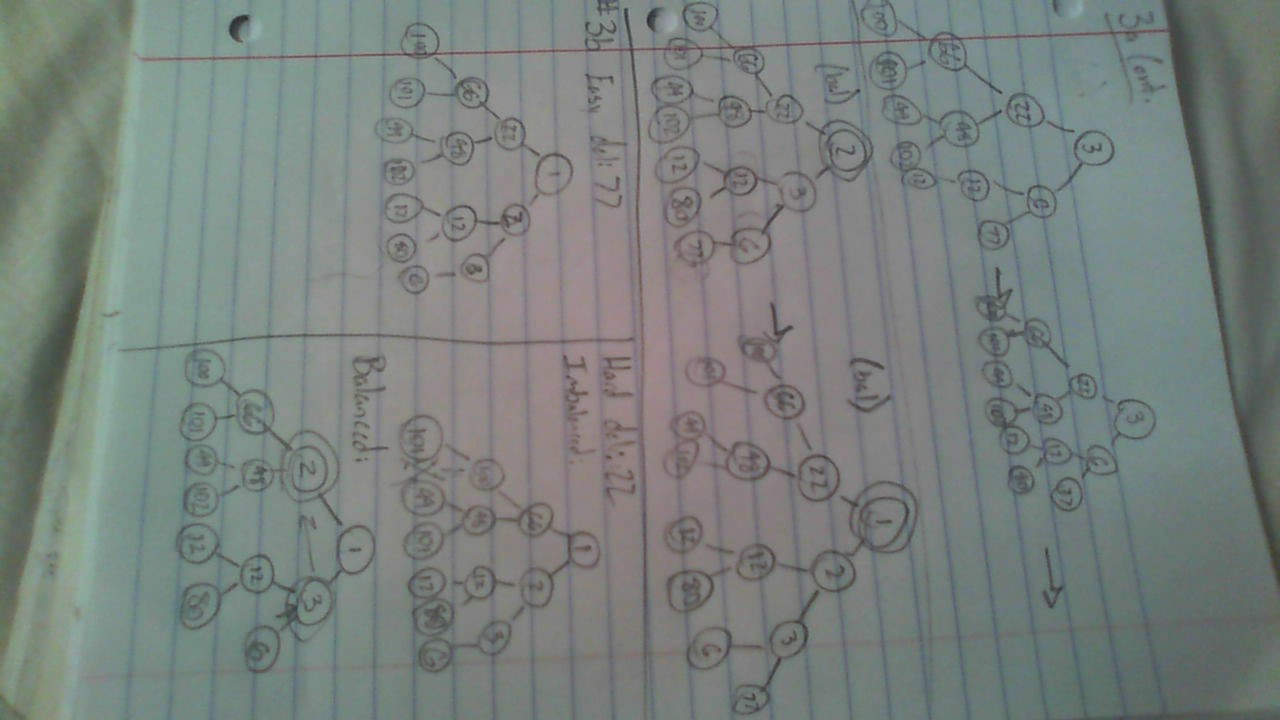 3a Cont.
3
22 6
66 48 12 77
100 101 49 102 12
3
22 6
66 48 12 77
101 49 12 80
(bal)
2
22 3
66 48 12 6
100 101 49 102 12 80 77
(bal)
1
22 2
66 48 12 3
101 49 102 12 80 6 77
#3b Easy del: 77
1
22 2
66 48 12 3
100 101 49 102 12 80 6
Hard del: 22
Imbalanced:
1
66 2
100 48 12 3
101 49 101 12 80 6
Balanced:
1
2 2 3
66 48 12 6
100 101 49 102 12 80